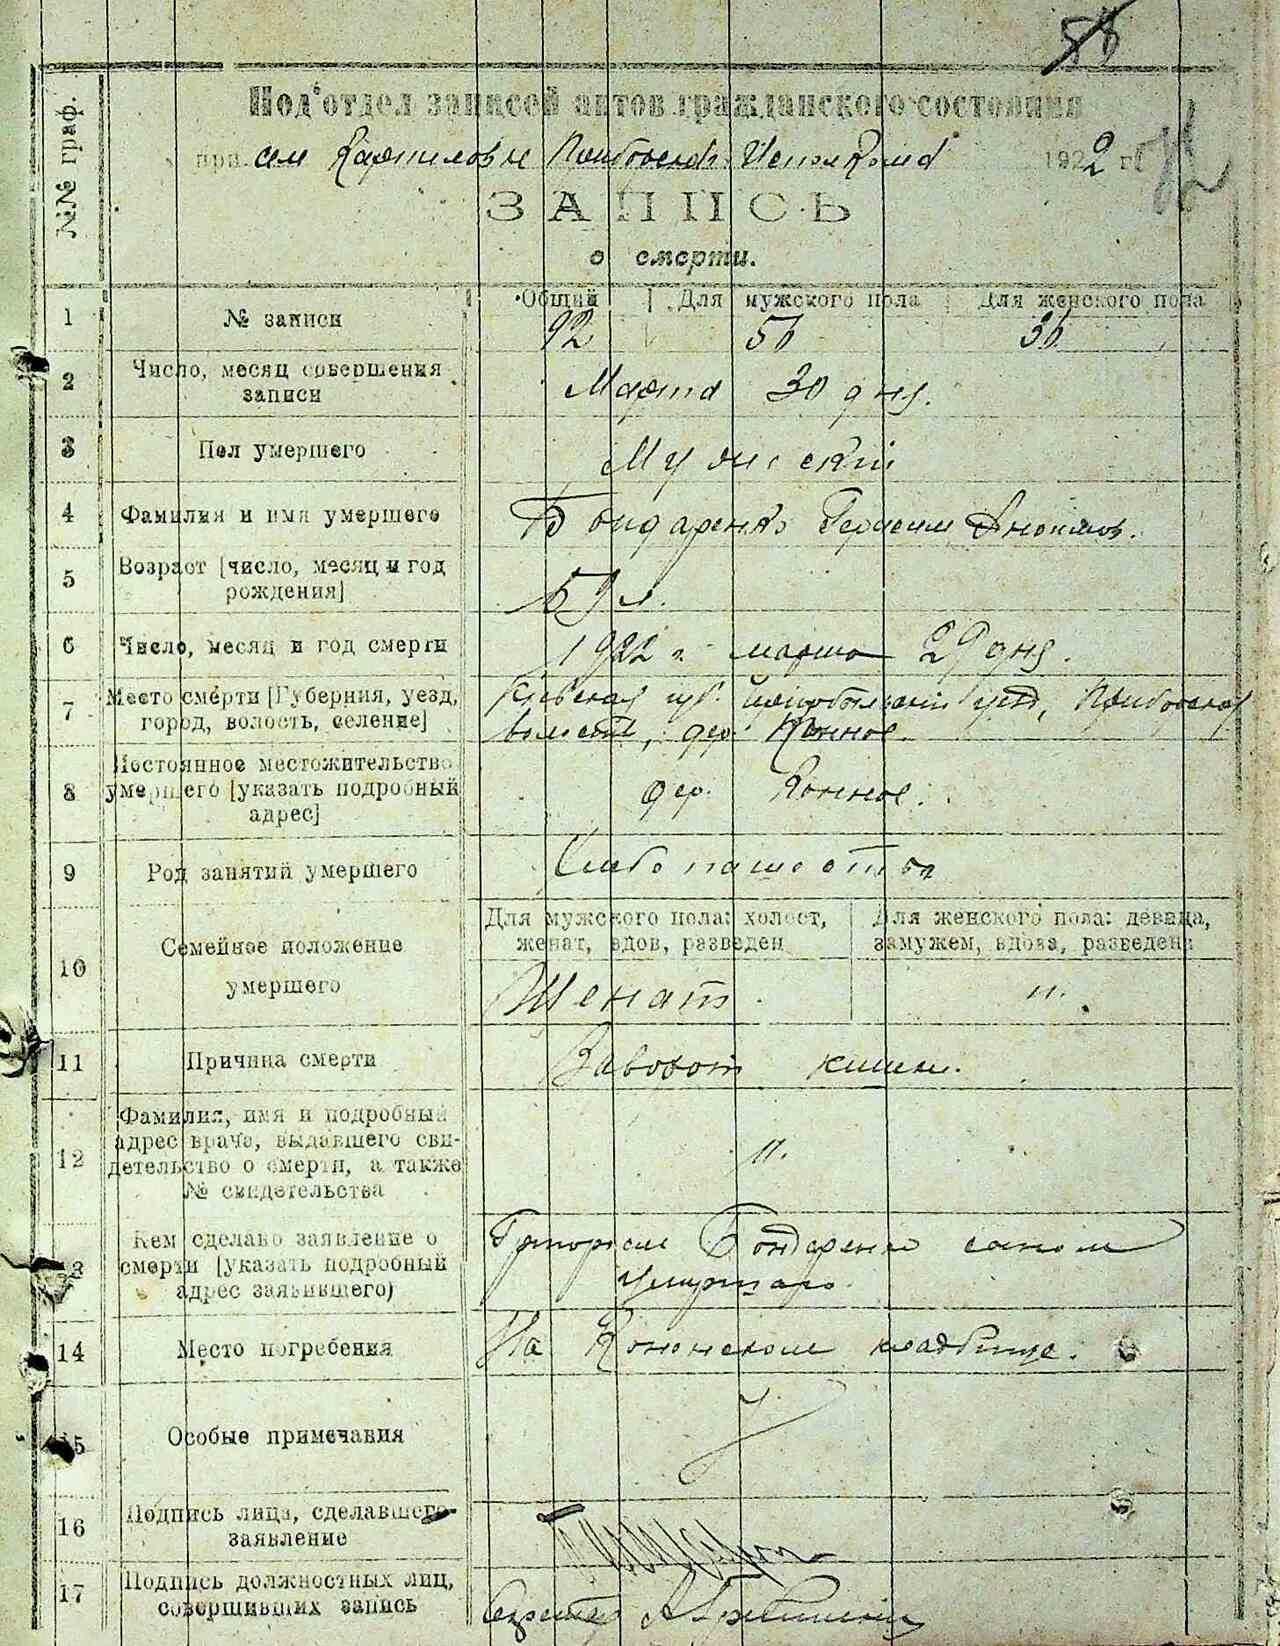 Под'отдел записей актов гражданского состояния
при сел Карпиловке Исполкома 1922 г.
ЗАПИСЬ
о смерти.
№№ граф.
1 № записи
Общий Для мужского пола Для женского пола
92 56 36
2 Число, месяц совершения записи
Марта 30 дня.
3 Пол умершего
Мужский
4 Фамилия и имя умершего
Бондаренко Герасим
5 Возраст [число, месяц и год рождения]
59 л.
6 Число, месяц и год смерти
1922 г. марта 29 дня.
7 Место смерти [Губерния, уезд, город, волость, селение]
Киевская губ. уезд,
волость, дер. Конное.
8 Постоянное местожительство умершего [указать подробный адрес]
дер. Конное.
9 Род занятий умершего
Хлебопашество
10 Семейное положение умершего
Для мужского пола: холост, женат, вдов, разведен
Для женского пола: девица, замужем, вдова, разведена
Женат. „.
11 Причина смерти
Заворот кишек.
12 Фамилия, имя и подробный адрес врача, выдавшего свидетельство о смерти, а также № свидетельства
„.
13 Кем сделано заявление о смерти [указать подробный адрес заявившего)
Григорием Бондаренко сыном
умершаго.
14 Место погребения
На Кононском кладбище.
15 Особые примечания
16 Подпись лица, сделавшего заявление
17 Подпись должностных лиц, совершивших запись
Секретарь